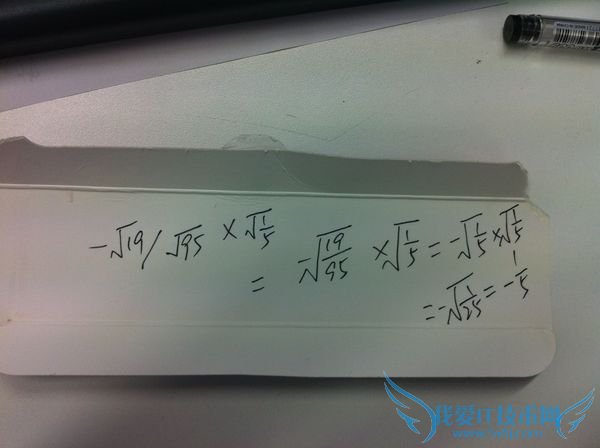 -√19/√95 × √1/5
= -√19/95 × √1/5 = -√1/5 × √1/5
= -√1/25 = -1/5
我爱IT技术网